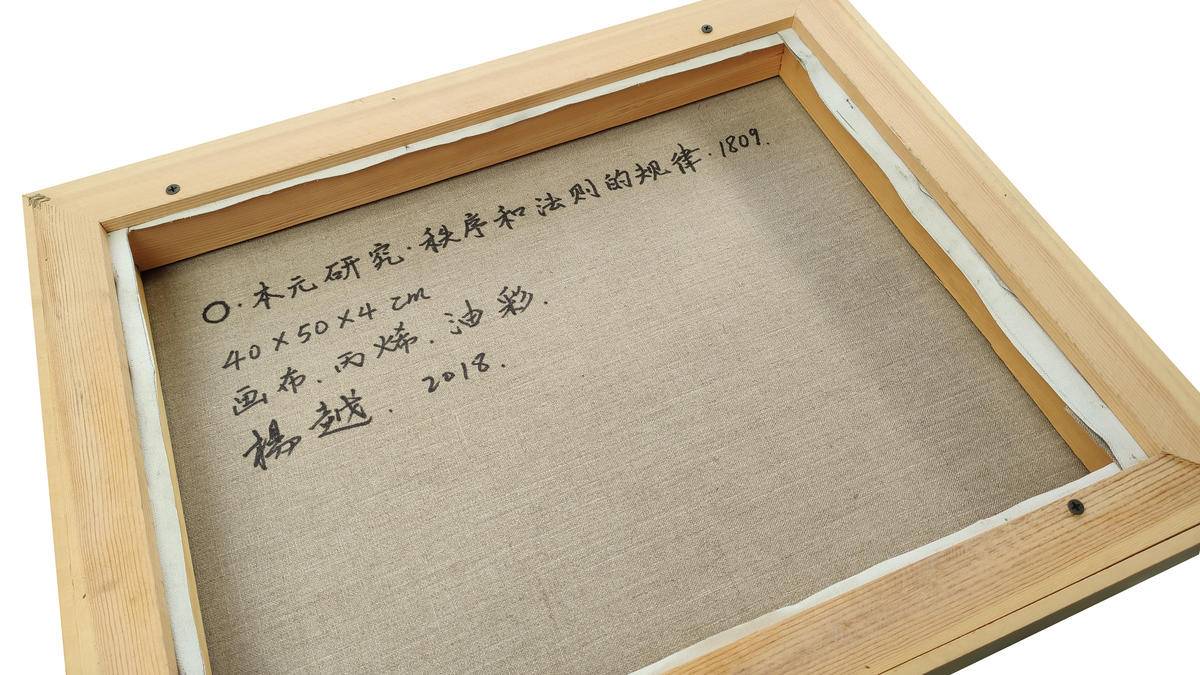 〇·本元研究·秩序和法则的规律·1809.
40×50×4cm
画布.丙烯.油彩.
楊越. 2018.